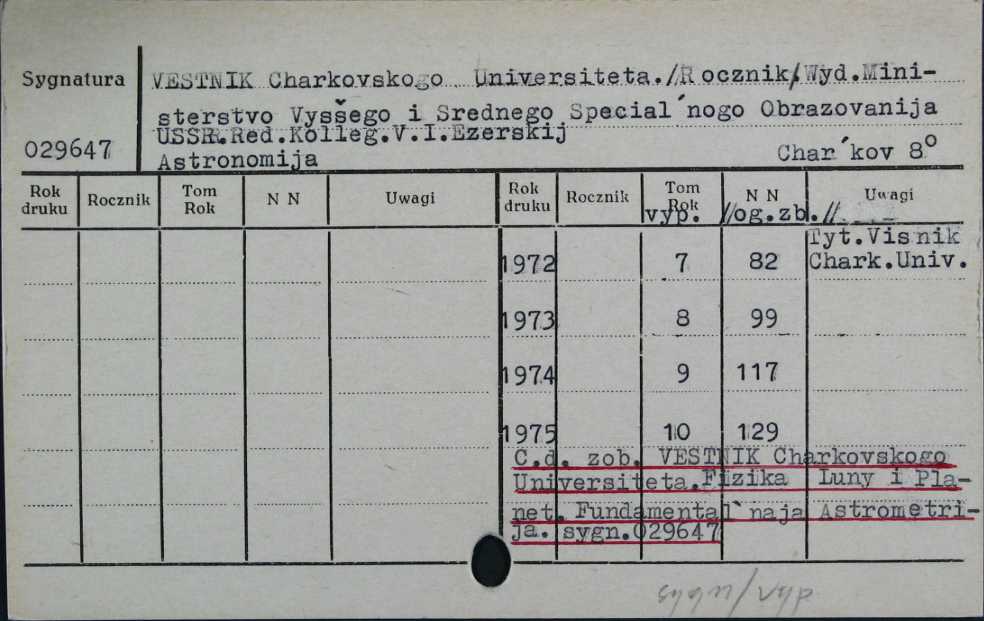 Sygnatura
VESTNIK Charkovskogo Universiteta./Rocznik/Wyd.Mini-
sterstvo Vysšego i Srednego Special´nogo Obrazovanija
USSR.Red.Kolleg.V.I.Ezerskij
029647
Astronomija Char´kov 8°
Rok druku Rocznik Tom Rok N N Uwagi Rok druku Rocznik Tom Rok N N Uwagi
vyp. //og.zb.//
Tyt.Visnik
1972 7 82 Chark.Univ.
1973 8 99
1974 9 117
1975 10 129
C.d. zob. VESTNIK Charkovskogo
Universiteta.Fizika Luny i Pla-
net. Fundamental`naja Astrometri-
ja. sygn.029647